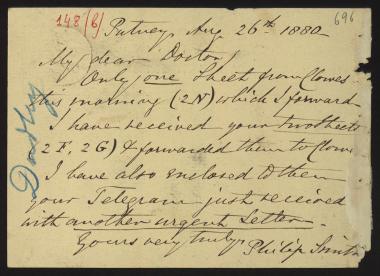 148(b)
696
Putney, Aug 26th 1880
My dear Doctor,
Only one Sheet from Clowes
this morning (2N) which I forward
I have received your two sheets
2F, 2G) & forwarded them to Clowes
I have also enclosed to them
your Telegram just received
with another urgent letter.
Yours very truly,
Philip Smith